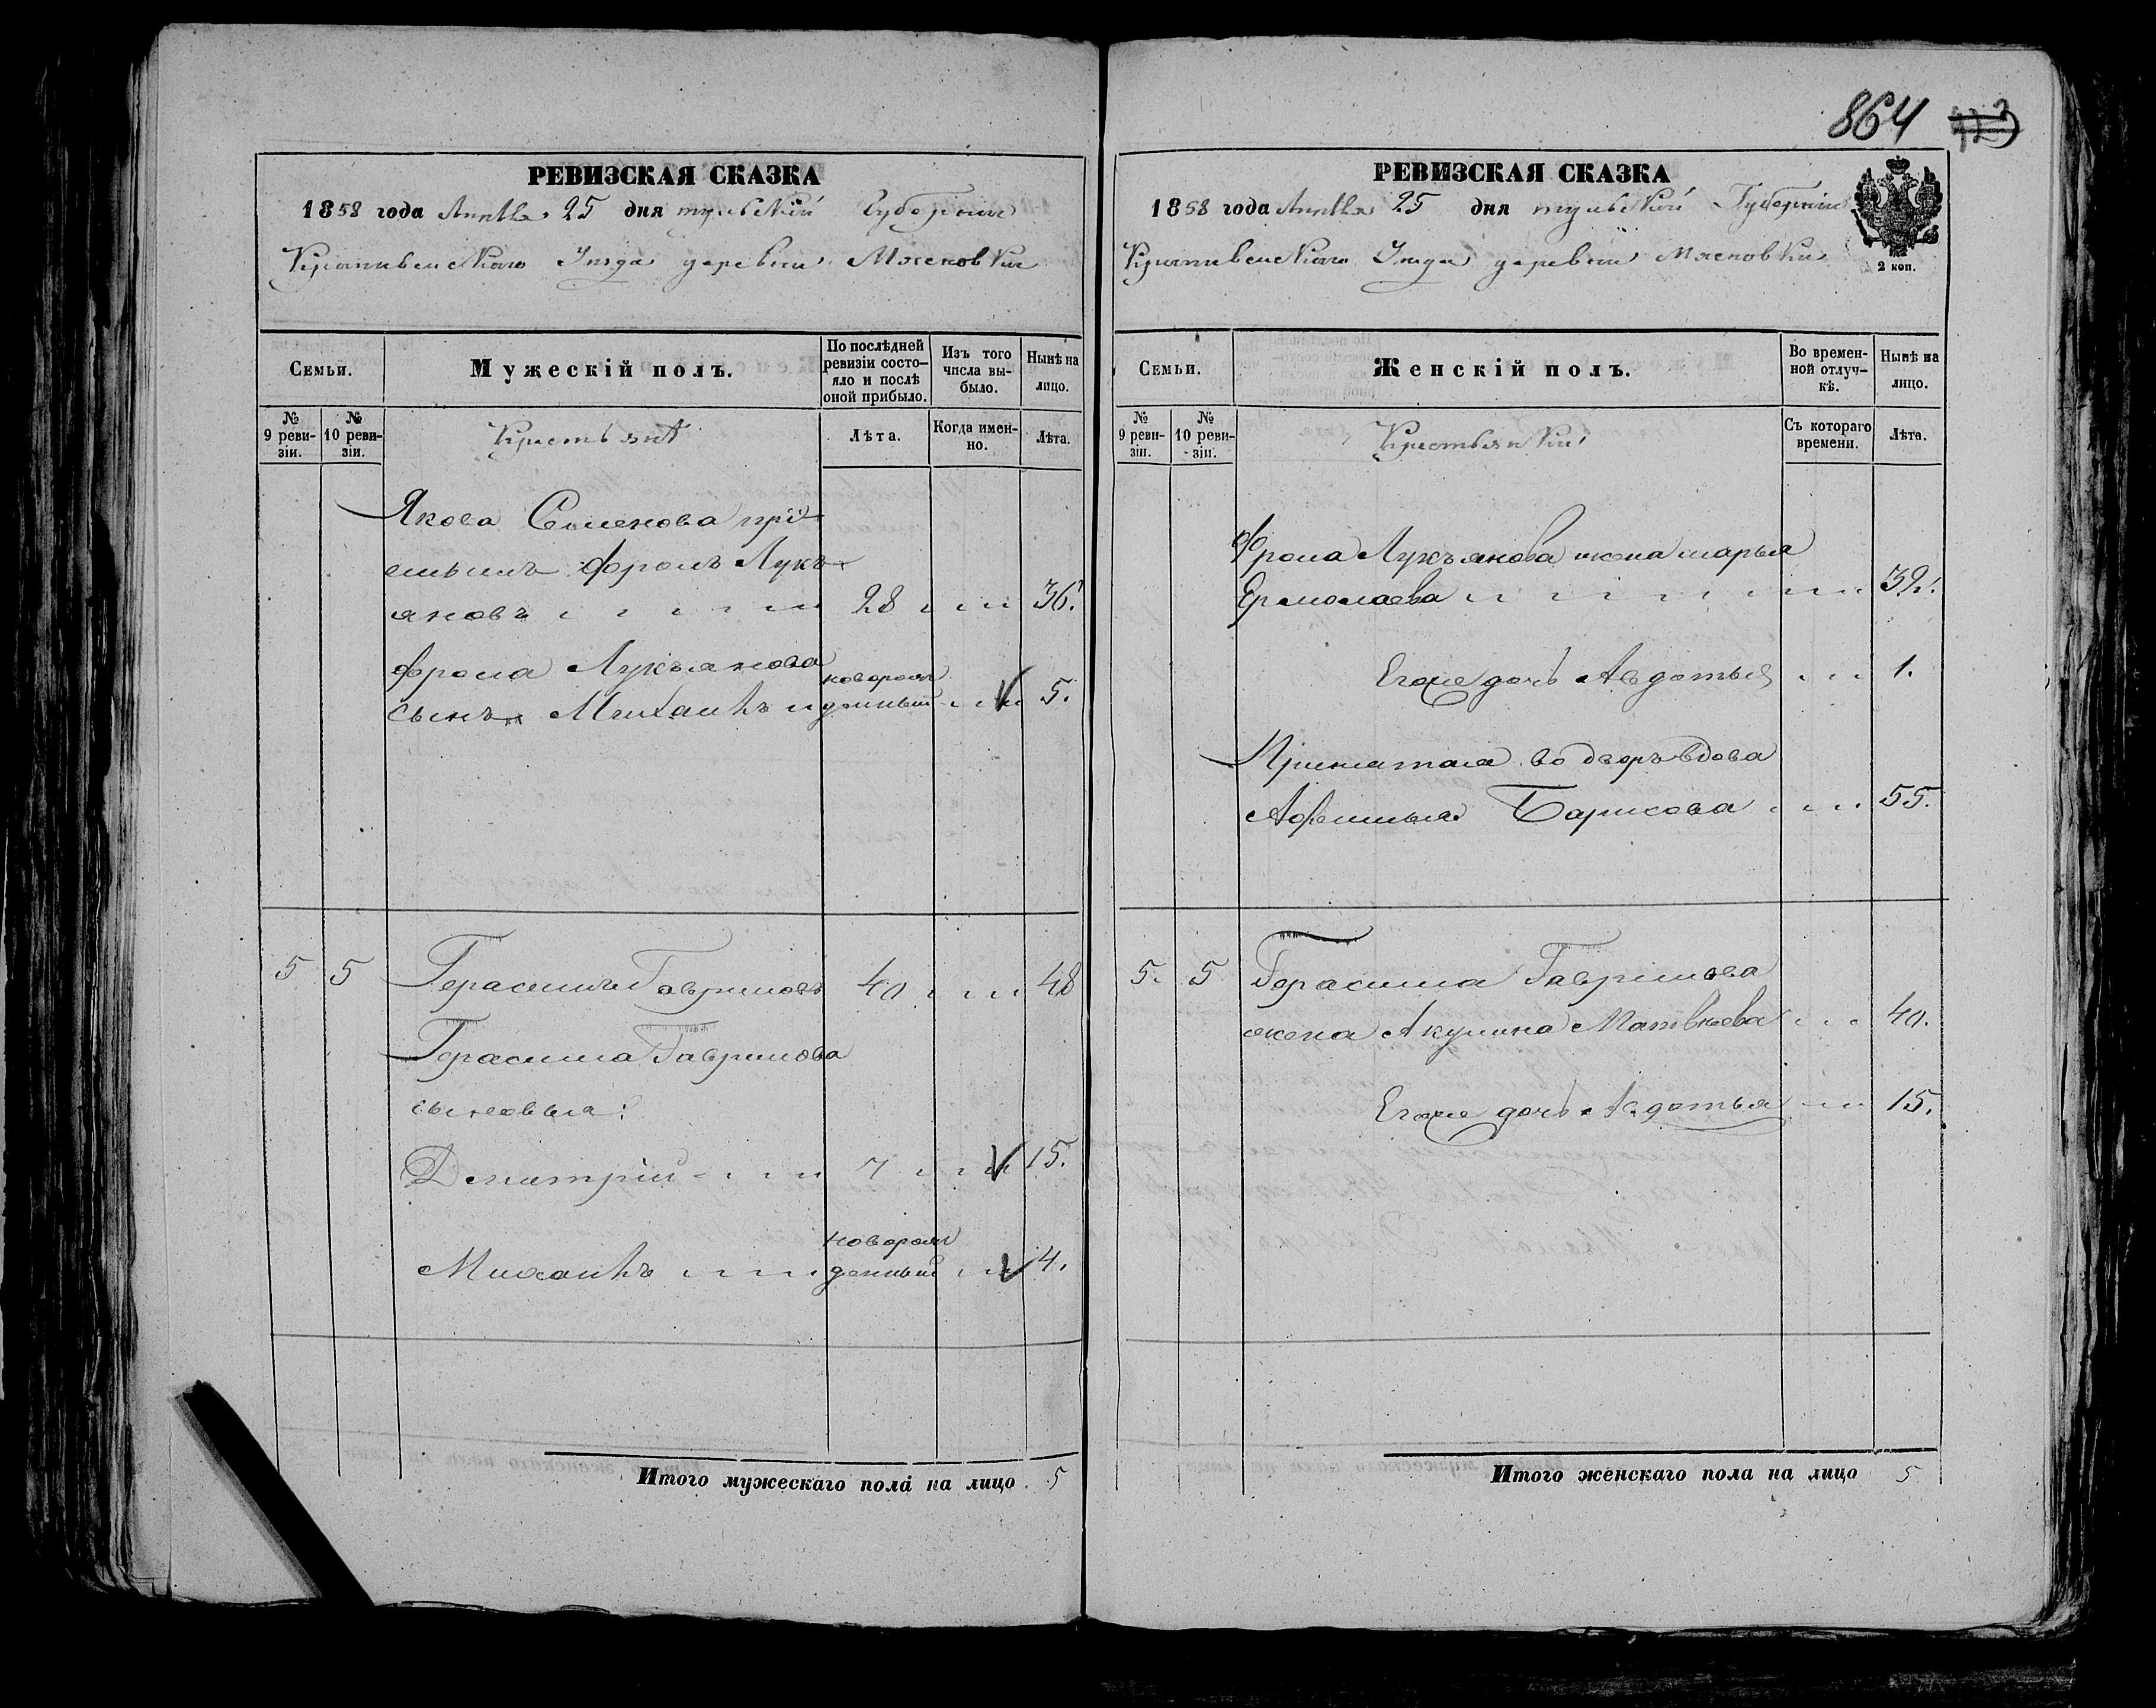 РЕВИЗСКАЯ СКАЗКА
1858 года Апреля 25 дня тульской Губернии
Крапивенскаго Уезда деревни Мясновки
Семьи.
Мужескій полъ.
По послѣдней ревизіи состо-
яло и послѣ
оной прибыло.
Изъ того
числа вы-
было.
Нынѣ на
лицо.
№
9 реви-
зіи.
№
10 реви-
зіи.
Крестьянъ
Лѣта.
Когда имен-
но.
Лѣта.
Якова Семенова прі
емышъ Фролъ Лукъ
яновъ 28 36.
Фрола Лукьянова
сынъ Михаилъ новорож
денный 5.
5 5 Герасимъ Гавриловъ 40 48
Герасима Гаврилова
сыновья:
Дмитрій 7 15.
Михаилъ новорож
денный 4.
Итого мужескаго пола на лицо 5
864
РЕВИЗСКАЯ СКАЗКА
1858 года Апреля 25 дня тульской Губерніи
Крапивенскаго Уезда деревни Мясновки
2 коп.
Семьи.
Женскій полъ.
Во времен-
ной отлуч-
кѣ.
Нынѣ на
лицо.
№
9 реви-
зіи.
№
10 реви-
зіи.
Крестьянки
Съ котораго
времени.
Лѣта.
Фрола Лукъянова жена марья
Ермолаева 32.
Егоже дочь Авдотья 1.
Принятая во дворъ вдова
Афимья Барисова 55.
5. 5 Герасима Гаврилова
жена Акулина Матвѣева 40.
Егоже дочь Авдотья 15.
Итого женскаго пола на лицо 5